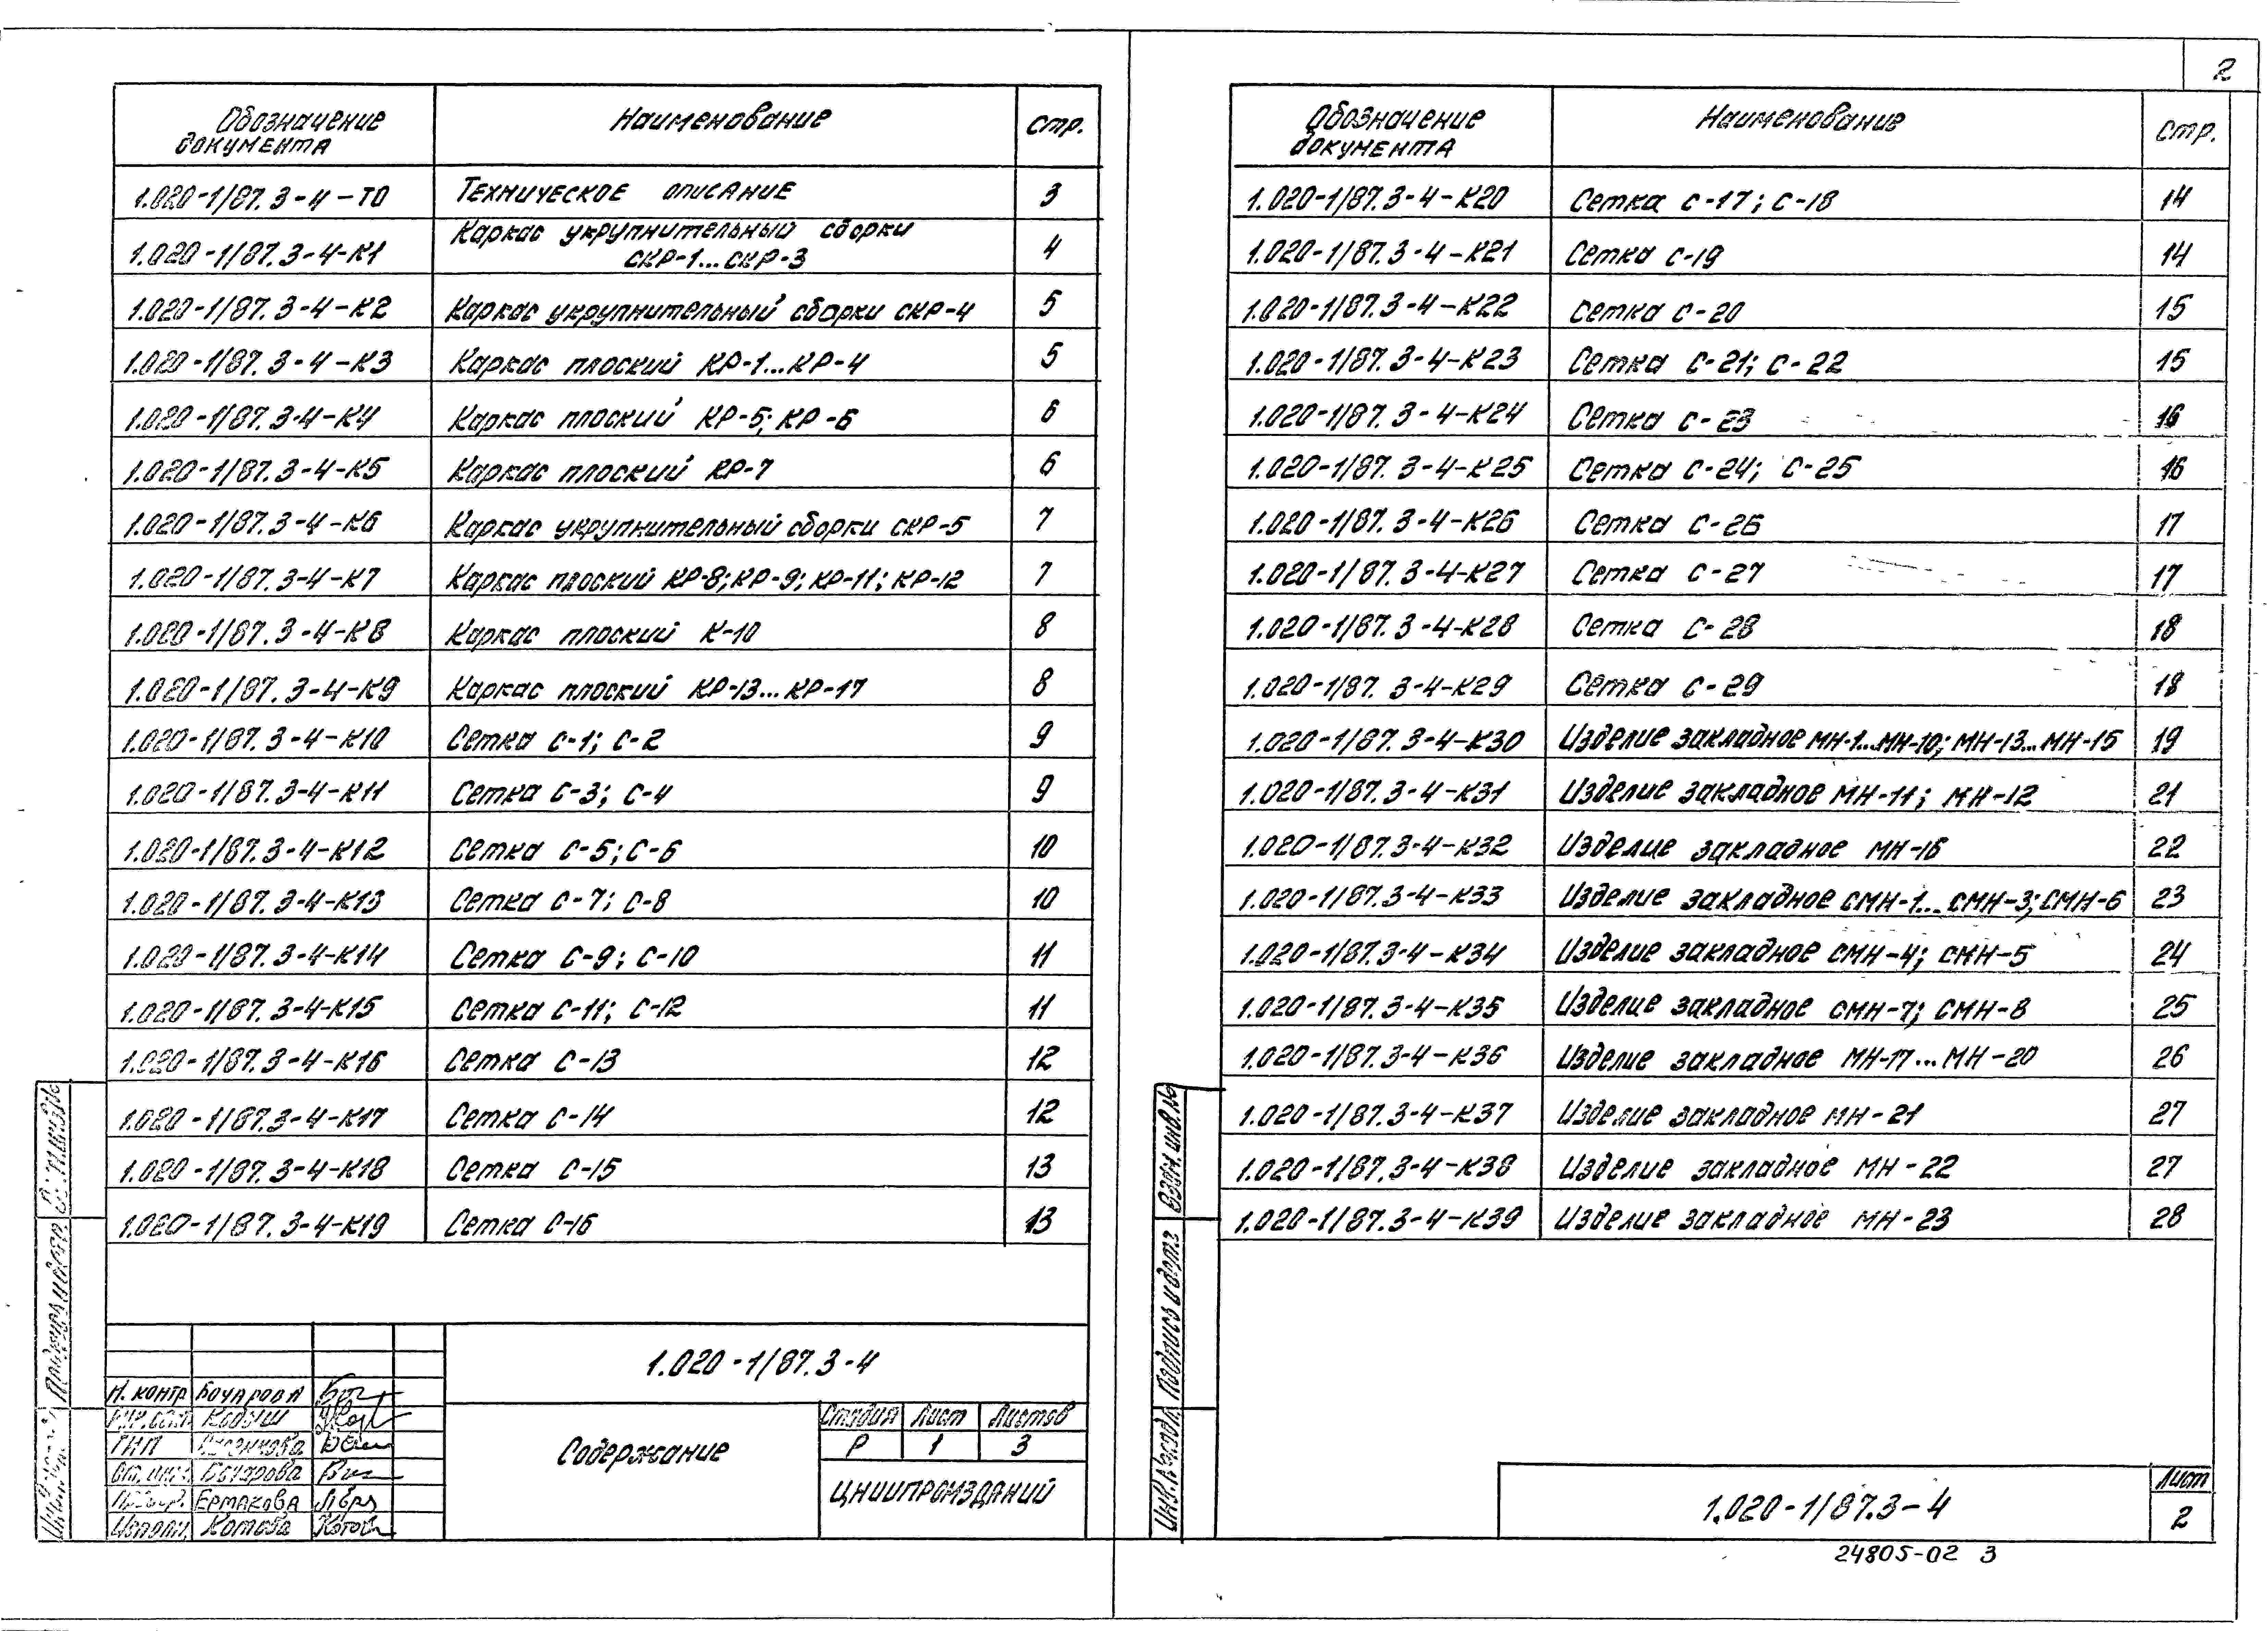 2
Обозначение документа Наименование Стр.
1.020-1/87.3-4-ТО Техническое описание 3
1.020-1/87.3-4-К1 Каркас укрупнительный сборки СКР-1...СКР-3 4
1.020-1/87.3-4-К2 Каркас укрупнительный сборки СКР-4 5
1.020-1/87.3-4-К3 Каркас плоский КР-1...КР-4 5
1.020-1/87.3-4-К4 Каркас плоский КР-5; КР-6 6
1.020-1/87.3-4-К5 Каркас плоский КР-7 6
1.020-1/87.3-4-К6 Каркас укрупнительный сборки СКР-5 7
1.020-1/87.3-4-К7 Каркас плоский КР-8; КР-9; КР-11; КР-12 7
1.020-1/87.3-4-К8 Каркас плоский К-10 8
1.020-1/87.3-4-К9 Каркас плоский КР-13...КР-17 8
1.020-1/87.3-4-К10 Сетка С-1; С-2 9
1.020-1/87.3-4-К11 Сетка С-3; С-4 9
1.020-1/87.3-4-К12 Сетка С-5; С-6 10
1.020-1/87.3-4-К13 Сетка С-7; С-8 10
1.020-1/87.3-4-К14 Сетка С-9; С-10 11
1.020-1/87.3-4-К15 Сетка С-11; С-12 11
1.020-1/87.3-4-К16 Сетка С-13 12
1.020-1/87.3-4-К17 Сетка С-14 12
1.020-1/87.3-4-К18 Сетка С-15 13
1.020-1/87.3-4-К19 Сетка С-16 13
1.020-1/87.3-4
Н. контр Бочарова
Кодыш
ГИП
Бочарова
Ермакова
Исполн. Котова
Содержание
Стадия Лист Листов
Р 1 3
ЦНИИПРОМЗДАНИЙ
Обозначение документа Наименование Стр.
1.020-1/87.3-4-К20 Сетка С-17; С-18 14
1.020-1/87.3-4-К21 Сетка С-19 14
1.020-1/87.3-4-К22 Сетка С-20 15
1.020-1/87.3-4-К23 Сетка С-21; С-22 15
1.020-1/87.3-4-К24 Сетка С-23 16
1.020-1/87.3-4-К25 Сетка С-24; С-25 16
1.020-1/87.3-4-К26 Сетка С-26 17
1.020-1/87.3-4-К27 Сетка С-27 17
1.020-1/87.3-4-К28 Сетка С-28 18
1.020-1/87.3-4-К29 Сетка С-29 18
1.020-1/87.3-4-К30 Изделие закладное МН-1...МН-10; МН-13...МН-15 19
1.020-1/87.3-4-К31 Изделие закладное МН-11; МН-12 21
1.020-1/87.3-4-К32 Изделие закладное МН-16 22
1.020-1/87.3-4-К33 Изделие закладное СМН-1...СМН-3; СМН-6 23
1.020-1/87.3-4-К34 Изделие закладное СМН-4; СМН-5 24
1.020-1/87.3-4-К35 Изделие закладное СМН-7; СМН-8 25
1.020-1/87.3-4-К36 Изделие закладное МН-17...МН-20 26
1.020-1/87.3-4-К37 Изделие закладное МН-21 27
1.020-1/87.3-4-К38 Изделие закладное МН-22 27
1.020-1/87.3-4-К39 Изделие закладное МН-23 28
Взам. инв. №
Подпись и дата
Инв. № подл.
1.020-1/87.3-4
Лист
2
24805-02 3